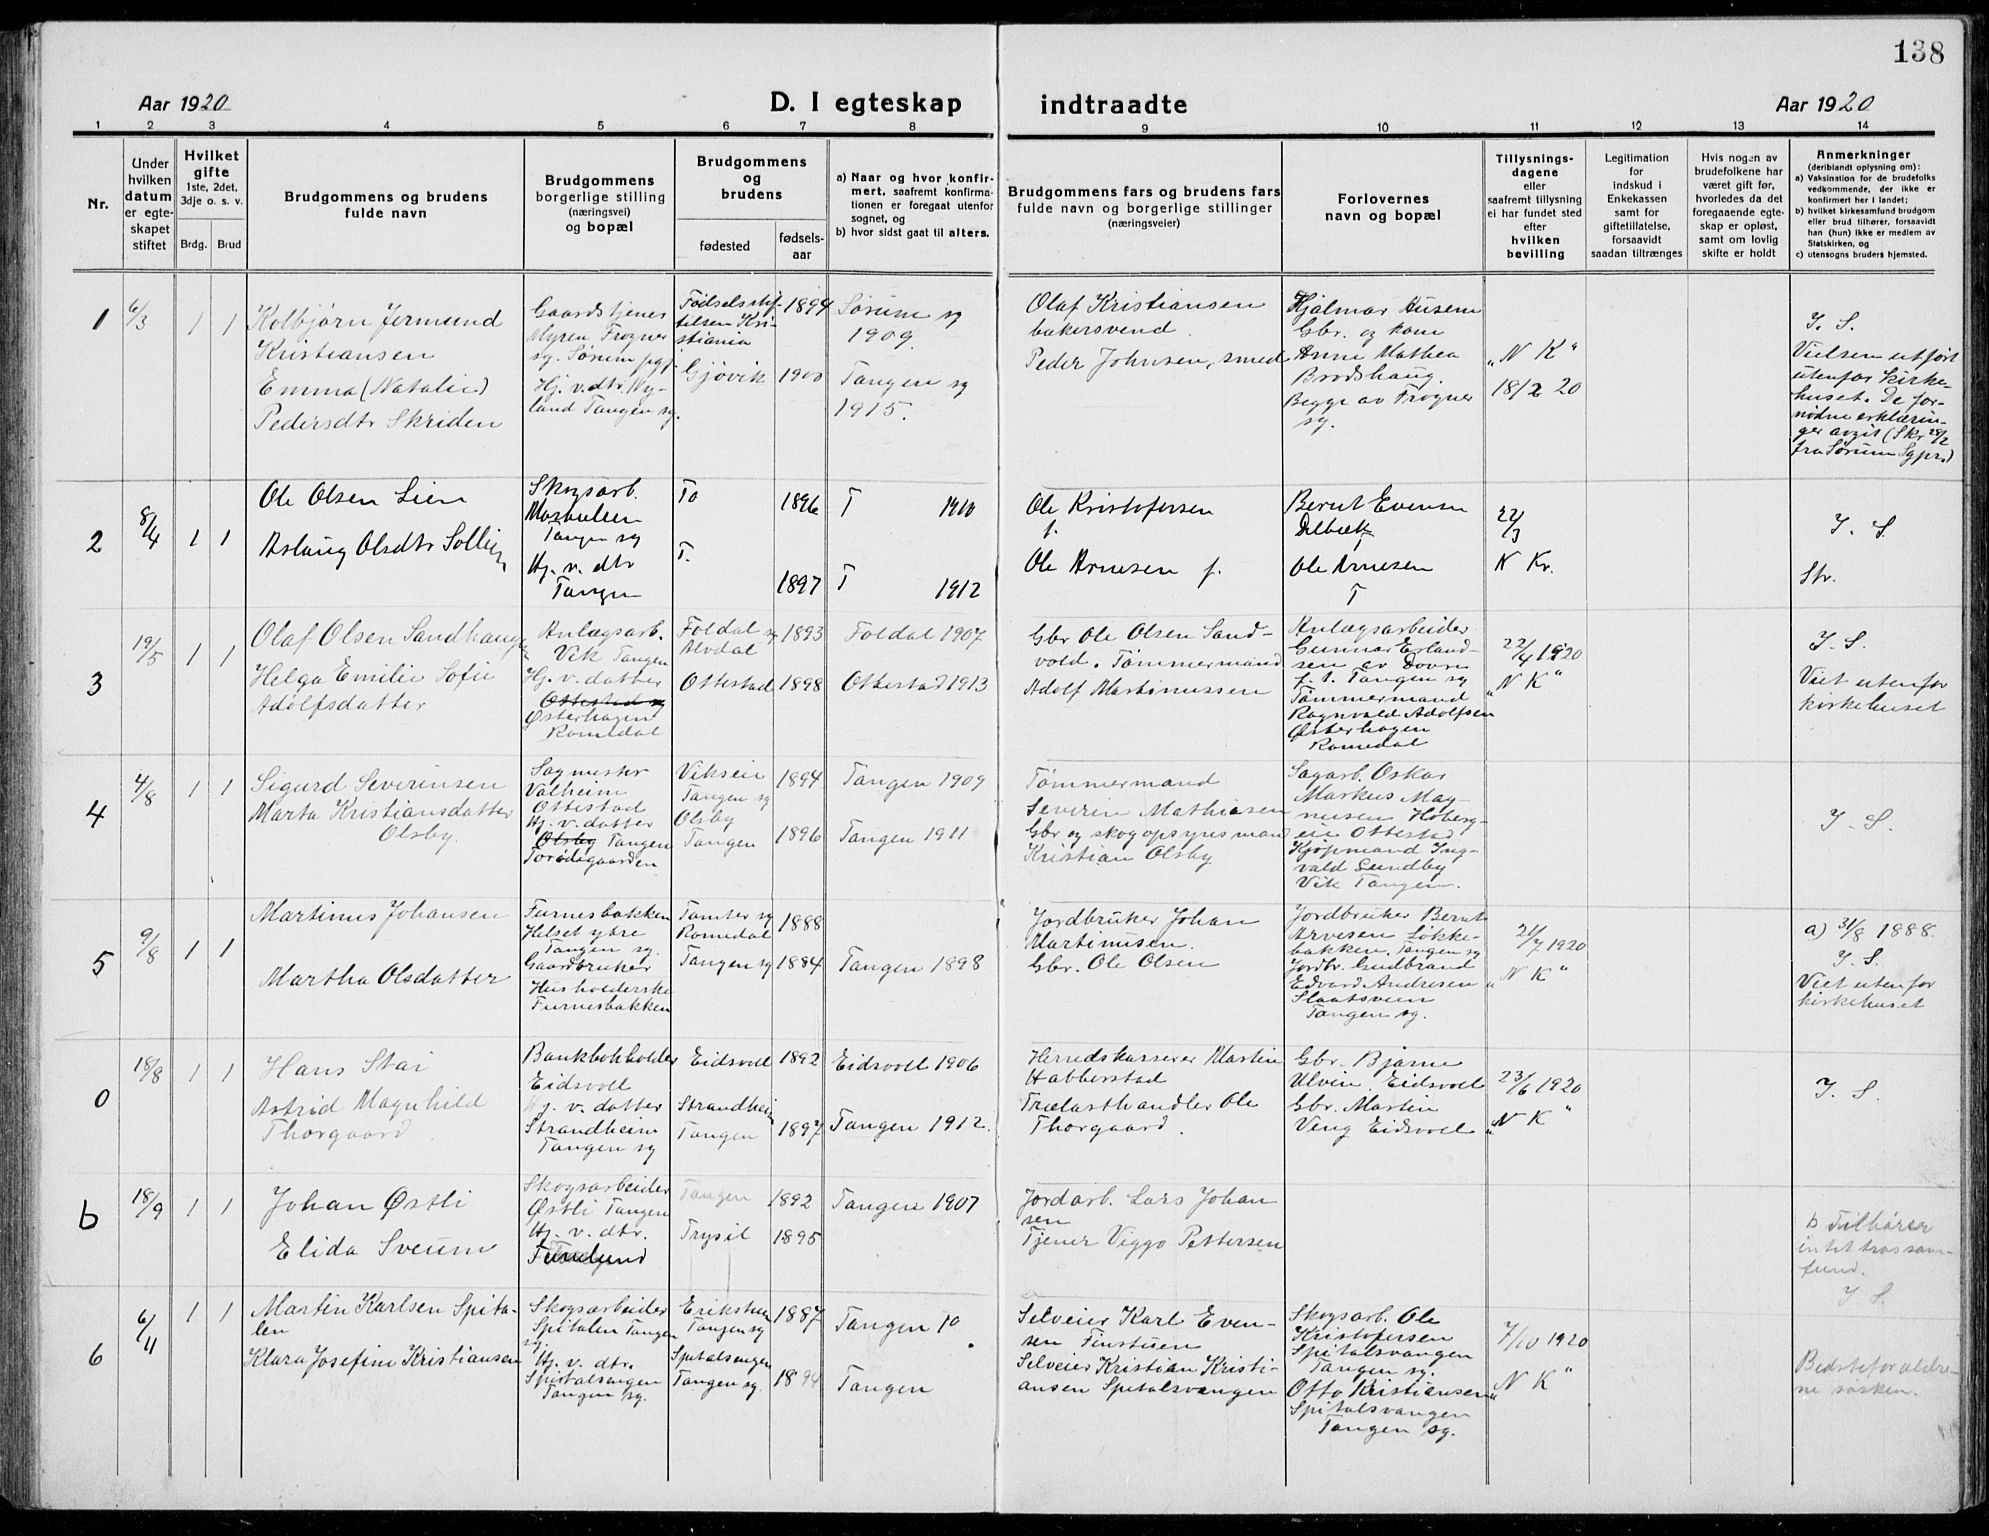 138
Aar 1920
D. I egteskap
indtraadte
Aar 1920
1 2 3 4 5 6 7 8 9 10 11 12 13 14
Nr.
Under
hvilken
datum
er egte-
skapet
stiftet
Hvilket
gifte
1ste, 2det,
3dje o. s. v.
Brdg. Brud
Brudgommens og brudens
fulde navn
Brudgommens
borgerlige stilling
(næringsvei)
og bopæl
Brudgommens
og
brudens
fødested
fødsels-
aar
a) Naar og hvor konfir-
mert, saafremt konfirma-
tionen er foregaat utenfor
sognet, og
b) hvor sidst gaat til alters.
Brudgommens fars og brudens fars
fulde navn og borgerlige stillinger
(næringsveier)
Forlovernes
navn og bopæl
Tillysnings-
dagene
eller
saafremt tillysning
ei har fundet sted
efter
hvilken
bevilling
Legitimation
for
indskud i
Enkekassen
samt for
giftetillatelse,
forsaavidt
saadan tiltrænges
Hvis nogen av
brudefolkene har
været gift før,
hvorledes da det
foregaaende egte-
skap er opløst,
samt om lovlig
skifte er holdt
Anmerkninger
(deriblandt oplysning om):
a) Vaksination for de brudefolks
vedkommende, der ikke er
konfirmert her i landet;
b) hvilket kirkesamfund brudgom
eller brud tilhører, forsaavidt
han (hun) ikke er medlem av
Statskirken, og
c) utensogns bruders hjemsted.
1
6/3
1 1
Kolbjørn Jermund
Kristiansen
Emma (Natalie)
Pedersdtr Skriden
Gaardstjener
Myren Frogner
sg. Sørum pgj.
Hj. v. dtr Ny-
land Tangen sg.
Fødselsstif-
telsen Kri-
stiania
Gjøvik
1894
1900
Sørum sg
1909.
Tangen sg
1915.
Olaf Kristiansen
bakersvend.
Peder Johnsen, smed
Hjalmar Husem
Gbr. og kone
Anne Mathea
Brodshaug.
Begge av Frogner
sg.
"N K"
18/2 20
I. S.
Vielsen utført
utenfor kirke-
huset. De for-
nødne erklærin-
ger avgit (Skr 28/2
fra Sørum Sgpr.)
2
8/4
1 1
Ole Olsen Lien
Aslaug Olsdtr Sollien
Skogsarb.
Tangen sg
Hj. v. dtr
Tangen
To
T.
1896
1897
T 1910
T 1912
Ole Kristofersen
f.
Ole Arnesen f.
Bernt Evensen
Delbæk
T
Ole Arnesen
T
22/3
N Kr.
I. S.
Str.
3
19/5
1 1
Olaf Olsen Sandhaugen
Helga Emilie Sofie
Adolfsdatter
Anlægsarb.
Vik Tangen
Hj. v. datter
Ottestad sg
Østerhagen
Romedal
Foldal sg
Alvdal
Ottestad
1893
1898
Foldal 1907
Ottestad 1913
Gbr Ole Olsen Sand-
vold. Tømmermand
Adolf Martinussen
Anlægsarbeider
Gunnar Erland-
sen av Dovre
f. t. Tangen sg
Tømmermand
Ragnvald Adolfsen
Østerhagen
Romedal
22/4 1920
"N K"
I. S.
Viet utenfor
kirkehuset
4
4/8
1 1
Sigurd Severinsen
Marta Kristiansdatter
Olsby.
Sagmester
Valheim
Ottestad
Hj. v. datter
Olsby Tangen
Torødegaarden
Viksein
Tangen sg
Olsby
Tangen
1894
1896
Tangen 1909
Tangen 1911
Tømmermand
Severin Mathiesen
Gbr og skogopsynsmand
Kristian Olsby
Sagarb. Oskar
Markus Mag-
nusen Hoberg-
en Ottestad
Kjøpmand Ing-
vald Sundby
Vik Tangen.
I. S.
5
9/8
1 1
Martinus Johansen
Martha Olsdatter
Furnesbakken
Helset ydre
Tangen sg.
Gaardbruker
Husholderske
Furnesbakken
Tomter sg
Romedal
Tangen sg
1888
1884
Tangen 1898
Jordbruker Johan
Martinusen.
Gbr. Ole Olsen
Jordbruker Bernt
Arvesen Løkke-
bakken, Tangen sg
Jordbr. Gudbrand
Edvard Andresen
Slaatsveen
Tangen sg.
21/7 1920
"N K"
a) 31/8 1888.
I. S.
Viet utenfor
kirkehuset
0
18/8
1 1
Hans Stai
Astrid Magnhild
Thorgaard.
Bankbokholder
Eidsvoll
Hj. v. datter
Strandheim
Tangen sg
Eidsvoll
Strandheim
Tangen
1892
1897
Eidsvoll 1906
Tangen 1912.
Herredskasserer Martin
Habberstad
Trælasthandler Ole
Thorgaard.
Gbr. Bjarne
Ulvin, Eidsvoll
Gbr. Martin
Veng Eidsvoll
23/6 1920
"N K"
I. S.
6
18/9
1 1
Johan Østli
Elida Sveum
Skogsarbeider
Østli Tangen
Hj. v. dtr.
Tangen
Trysil
1892
1895
Tangen 1907
Jordarb. Lars Johan
sen
Tjener Viggo Pettersen
b) Tilhører
intet trossam-
fund.
I. S.
6
6/11
1 1
Martin Karlsen Spita-
len
Klara Josefine Kristiansen
Skogsarbeider
Spitalen Tangen
sg.
Hj. v. dtr.
Spitalsangen
Tangen sg.
Erikstuen
Tangen sg
Spitalsangen
Tangen sg.
1887
1894
Tangen 10
Tangen
Selveier Karl Even-
sen Finstuen
Selveier Kristian Kristi-
ansen Spitalsvangen
Skogsarb. Ole
Kristofersen
Spitalsvangen
Tangen sg.
Otto Kristiansen
Spitalsvangen
Tangen sg.
7/10 1920
"N K"
Bedsteforældre-
ne søsken.